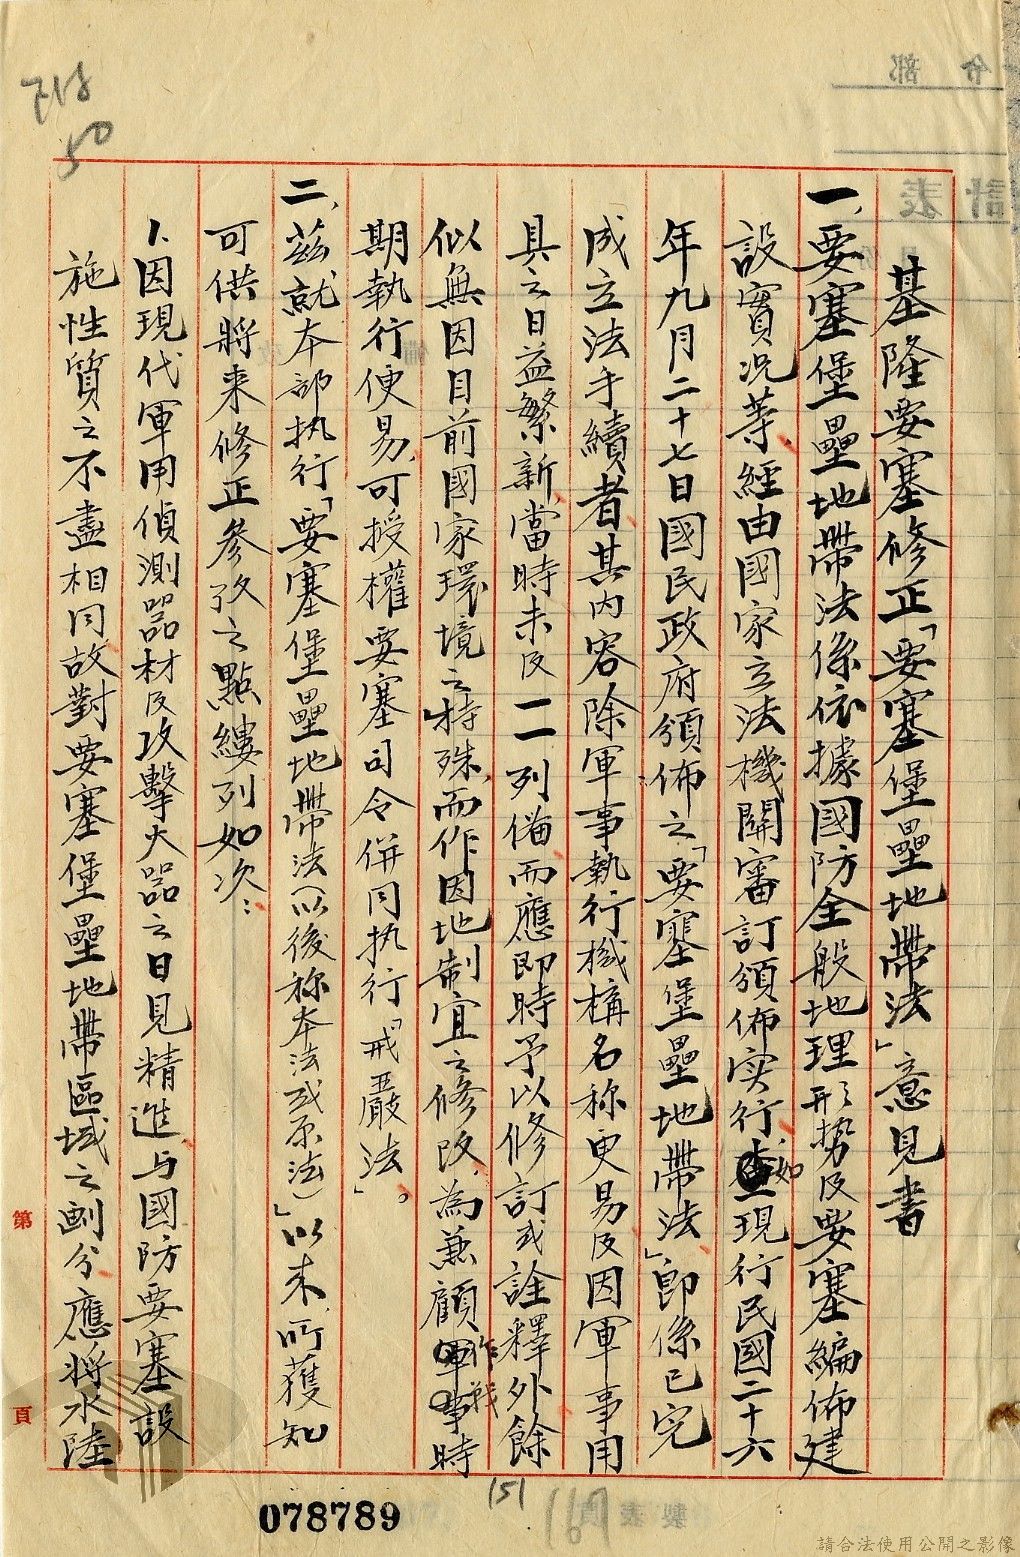 基隆要塞修正「要塞堡壘地帶法」意見書
一、要塞堡壘地帶法係依據國防全般地理形势及要塞編佈建
設實况等經由國家立法機關審訂頒佈实行如查現行民國二十六
年九月二十七日國民政府頒佈之「要塞堡壘地帶法」即係已完
成立法手續者其內容除軍事執行機構名称更易及因軍事用
具之日益繁新當時未及一一列僃而應即時予以修訂或詮釋外餘
似無因目前國家環境之特殊而作因地制宜之修改為兼顧作战時
期執行便易可授權要塞司令併同执行「戒嚴法」。
二、茲就本部执行「要塞堡壘地帶法(以後称本法或原法)」以来所獲知
可供將来修正參攷之點縷列如次：
1.因現代軍用偵測器材及攻擊火器之日見精進与國防要塞設
施性質之不盡相同故對要塞堡壘地帶區域之劃分應將水陸
第 頁
078789
151
167
請合法使用公開之影像